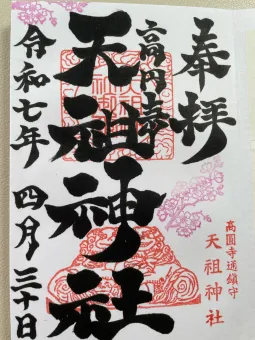 奉拝
高円寺
天祖神社
令和七年 四月三十日
高圓寺邊鎮守
天祖神社